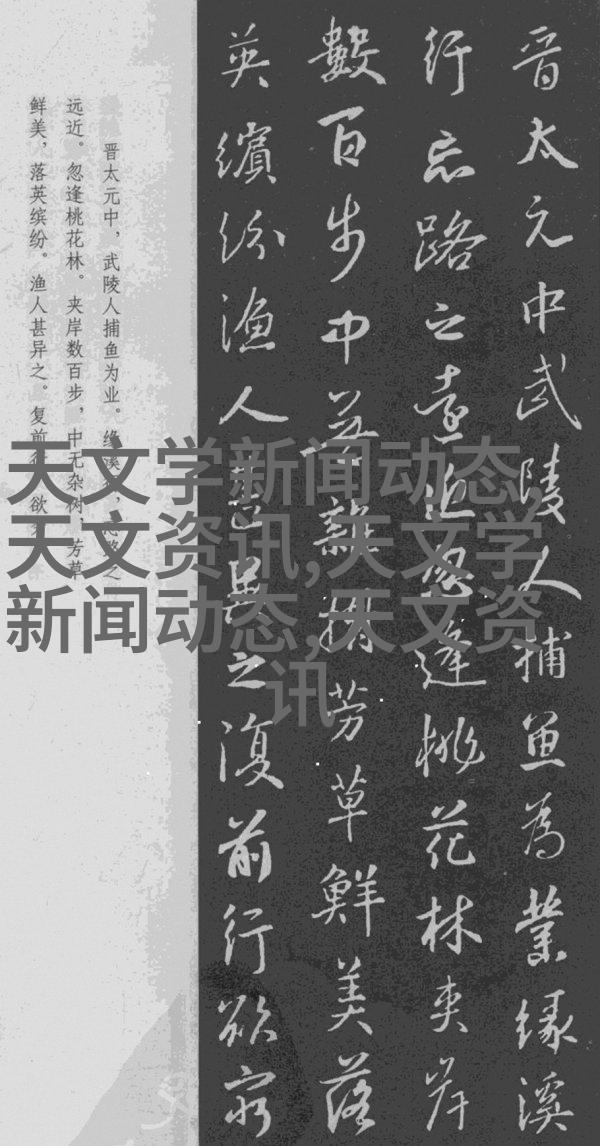 晋太元中武陵人捕魚為業緣溪
行忘路之遠近忽逢桃花林夾岸
數百步中無雜樹芳草鮮美落
英繽紛漁人甚異之復前行欲窮
晋太元中，武陵人捕鱼为业。缘溪行，忘路之
远近。忽逢桃花林。夹岸数百步，中无杂树，芳草
鲜美，落英缤纷。渔人甚异之。复前行，欲
天文学新闻动态,
天文资讯,天文学
新闻动态,天文资
讯